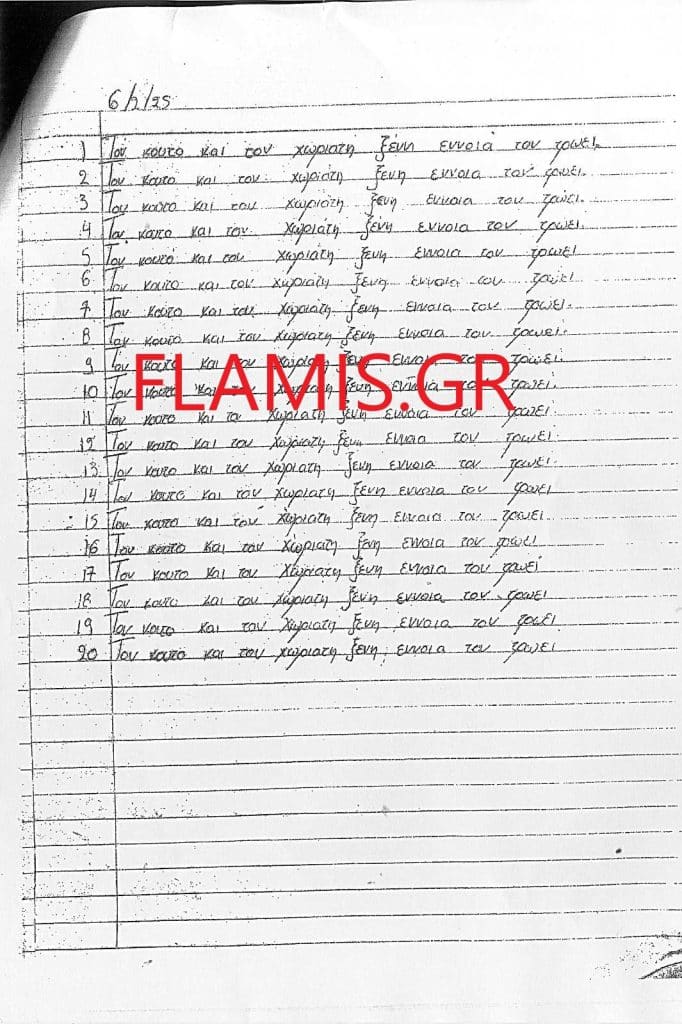 6/2/25
1 Τον κουτο και τον χωριατη ξενη εννοια τον τρωει.
2 Τον κουτο και τον χωριάτη ξενη εννοια τον τρωει.
3 Τον κουτο και τον χωριάτη ξενη εννοια τον τρωει.
4 Τον κουτο και τον χωριάτη ξένη εννοια τον τρωει.
5 Τον κουτό και τον χωριάτη ξενη εννοια τον τρωει
6 Τον κουτο και τον χωριάτη ξενη εννοια τον τρωει
7. Τον κουτο και τον χωριατη ξενη εννοια τον τρωει.
8 Τον κουτο και τον χωριατη ξενη εννοια τον τρωει.
9 Τον κουτο και τον χωριατη ξενη εννοια τον τρωει.
FLAMIS.GR
10 Τον κουτο και τον χωριατη ξενη εννοια τον τρωει.
11 Τον κουτο και το χωριατη ξενη εννοια τον τρωει
12 Τον κουτο και τον χωριατη ξενη εννοια τον τρωει
13 Τον κουτο και τον χωριατη ξενη εννοια τον τρωει.
14 Τον κουτο και τον χωριατη ξενη εννοια τον τρωει
15 Τον κουτο και τον χωριατη ξενη εννοια τον τρωει
16 Τον κουτο και τον χωριατη ξενη εννοια τον τρωει
17 Τον κουτο και τον χωριατη ξενη εννοια τον τρωει
18 Τον κουτο και τον χωριατη ξενη εννοια τον τρωει
19 Τον κουτο και τον χωριατη ξενη εννοια τον τρωει
20 Τον κουτο και τον χωριατη ξενη εννοια τον τρωει